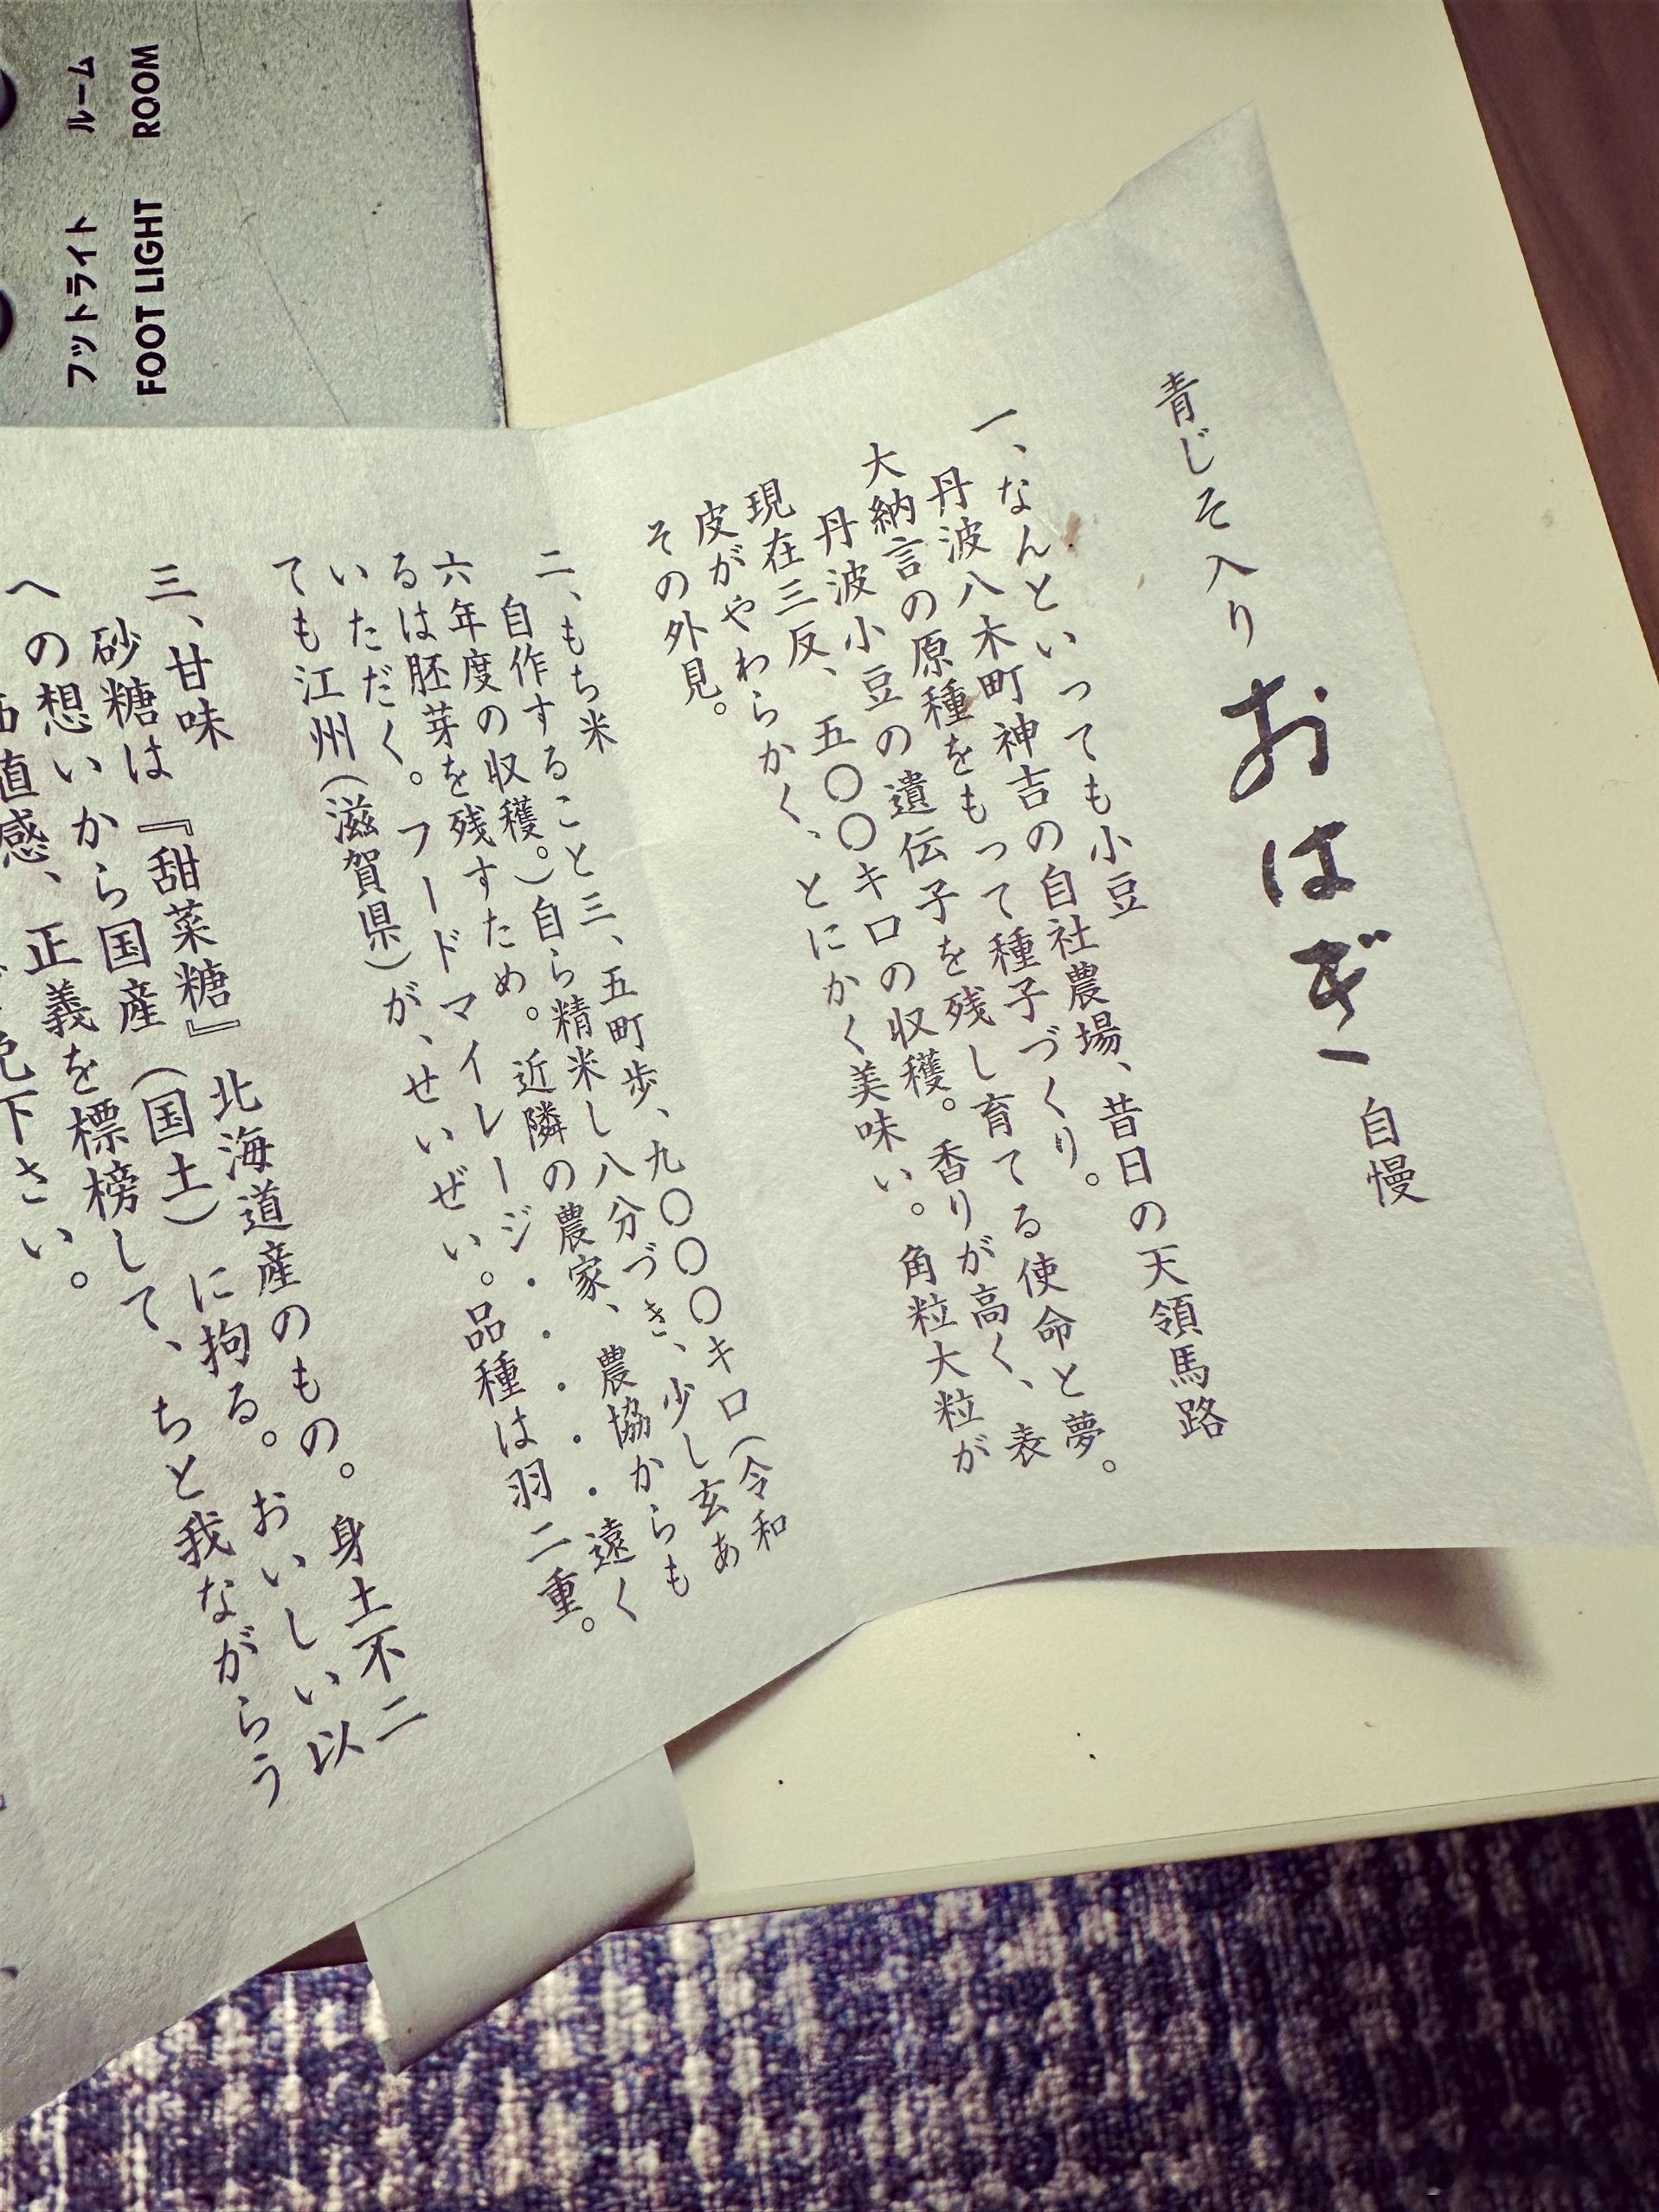 青じそ入り おはぎ 自慢
一、なんといっても小豆
丹波八木町神吉の自社農場、昔日の天領馬路
大納言の原種をもって種子づくり。
丹波小豆の遺伝子を残し育てる使命と夢。
現在三反、五〇〇キロの収穫。香りが高く、表
皮がやわらかく、とにかく美味い。角粒大粒が
その外見。
二、もち米
自作すること三、五町歩、九〇〇〇キロ(令和
六年度の収穫。)自ら精米し八分づき、少し玄あ
るは胚芽を残すため。近隣の農家、農協からも
いただく。フードマイレージ・・・・・遠く
ても江州(滋賀県)が、せいぜい。品種は羽二重。
三、甘味
砂糖は『甜菜糖』北海道産のもの。身土不二
への想いから国産(国土)に拘る。おいしい以
直感、正義を標榜して、ちと我ながらう
下さい。
ルーム
ROOM
フットライト
FOOT LIGHT